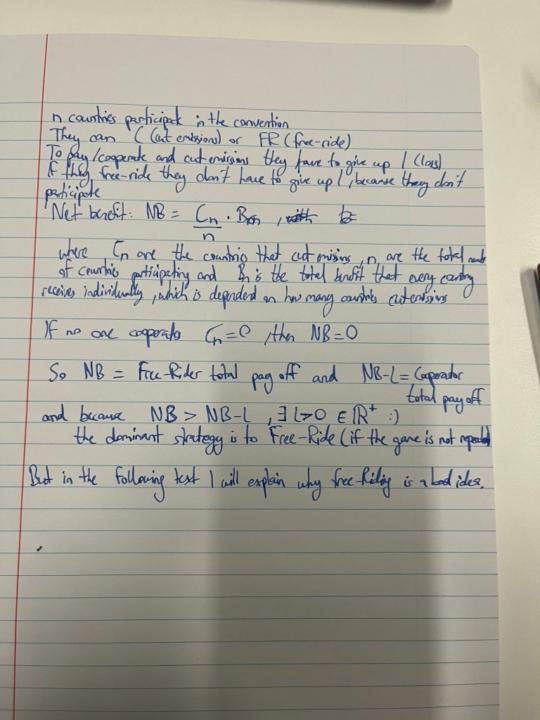 n countries participate in the convention
They can C (cut emissions) or FR (free-ride)
To pay/cooperate and cut emissions they have to give up l (loss)
If they free-ride they don't have to give up l, because they don't
participate
Net benefit: NB = Cn/n · Bn,
where Cn are the countries that cut emissions, n are the total
of countries participating and Bn is the total benefit that every country
receives individually, which is depended on how many countries cut emissions
If no one cooperates Cn=0, then NB=0
So NB = Free-Rider total pay off and NB-L = Cooperator
total pay off
and because NB > NB-L, ∃ l>0 ∈ ℝ⁺ :)
the dominant strategy is to Free-Ride (if the game is not repeated)
But in the following text I will explain why free-Riding is a bad idea.